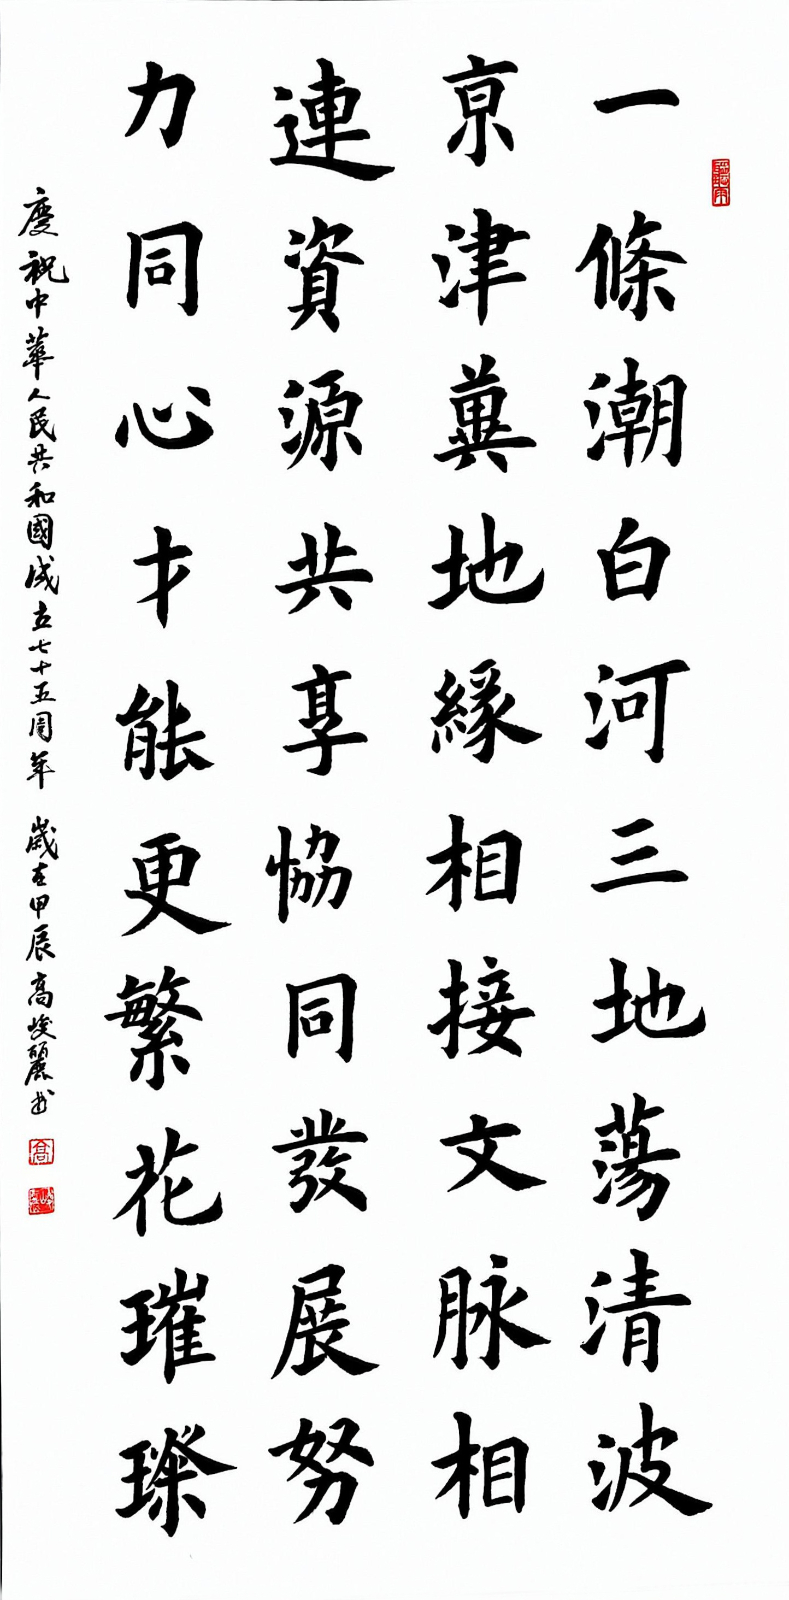 一條潮白河三地蕩清波
京津冀地緣相接文脉相
連資源共享協同發展努
力同心才能更繁花璀璨
慶祝中華人民共和國成立七十五周年 歲在甲辰 高峻麗書